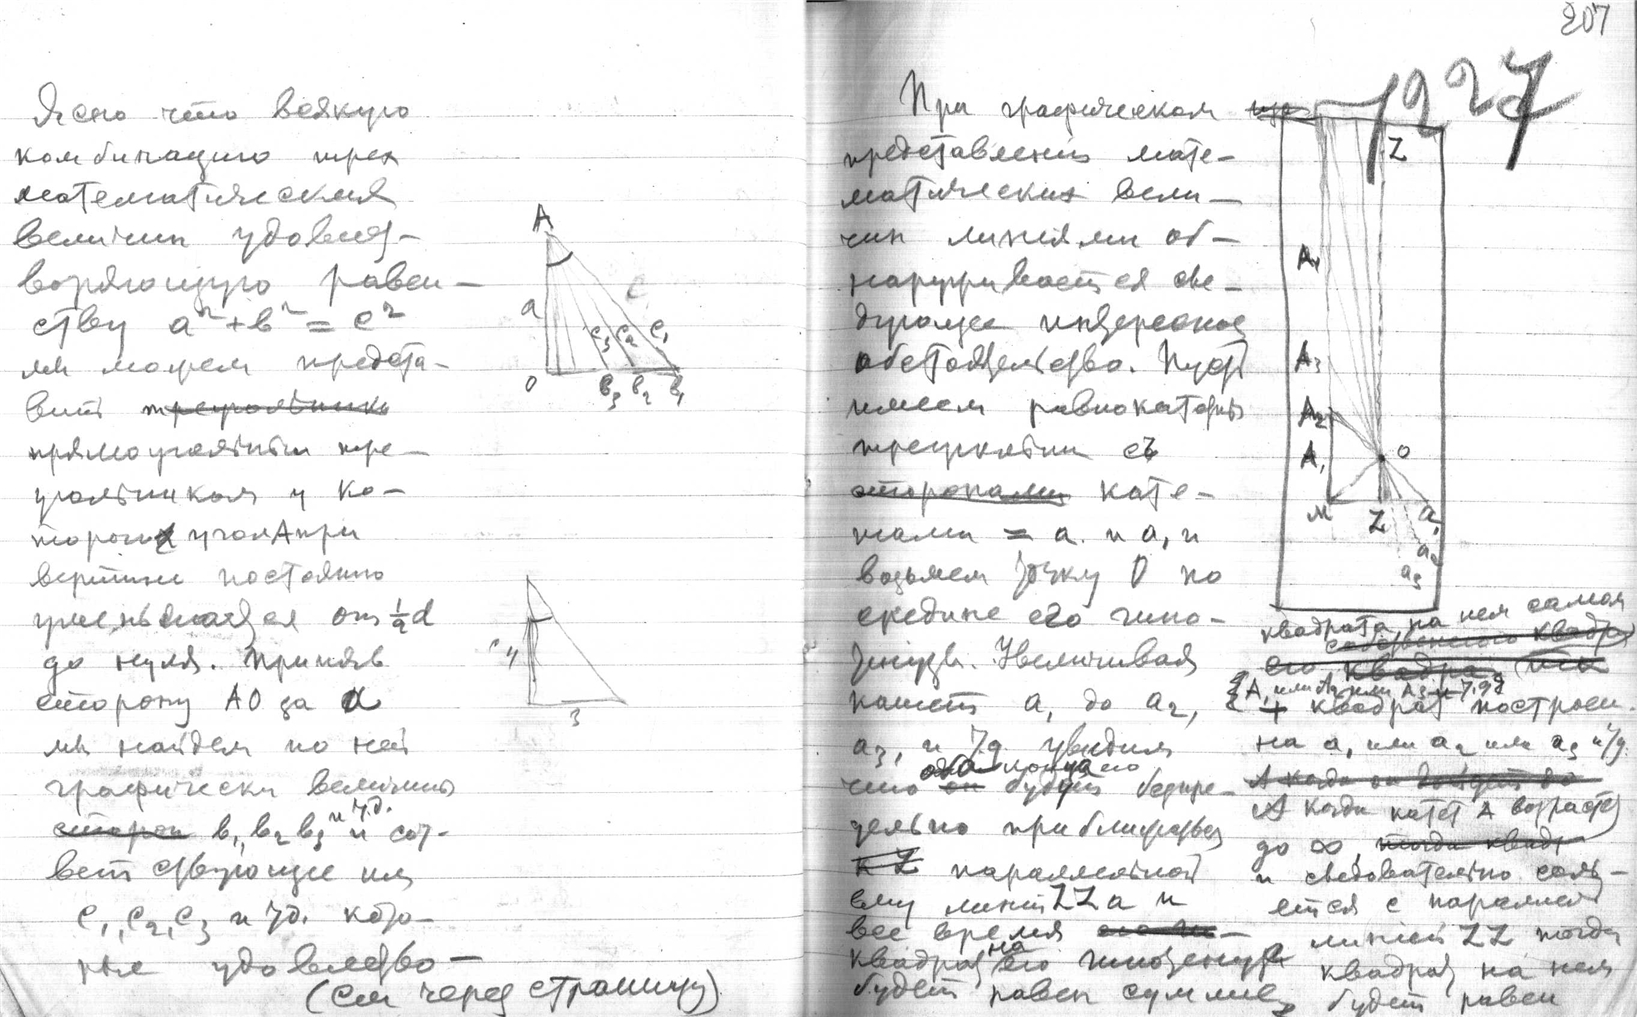 Ясно что всякую
комбинацию трех
математических
величин удовлет-
воряющую равен-
ству a² + b² = c²
мы можем предста-
вить треугольники
прямоугольным тре-
угольником у ко-
торого угол A при
вершине постоянно
уменьшается от ½d
до нуля. Приняв
сторону AO за a
мы найдем по ней
графически величины
сторон b₁, b₂ b₃ и т.д. и соот-
ветствующие им
c₁, c₂, c₃ и т.д. кото-
рые удовлетво-
(см через страницу)
A
a
c
c₃ c₂ c₁
O b₃ b₂ b₁
4
3
207
1927
При графическом
представлении мате-
матических вели-
чин линиями об-
наруживается сле-
дующее интересное
обстоятельство. Пусть
имеем равнокатетный
треугольник съ
сторонами кате-
тами = a. и a₁ и
возьмем точку O по
средине его гипо-
тенузы. Увеличивая
катет a₁ до a₂,
a₃, и т.д. увидим
что он будет беспре-
дельно приближаться
к Z параллельной
ему линии ZZ а и
все время
квадрат на его гипотенузе
будет равен сумме
Z
A₃
A₂
A₁
O
M Z a₁
a₂
a₃
квадрата на нем самом
A₁ или A₂ или A₃ и т.д.
+ квадрат построен.
на a₁ или a₂ или a₃ и т.д.
А когда катет A возрастет
до ∞
и следовательно соль-
ется с параллел
линией ZZ тогда
квадрат на нем
будет равен